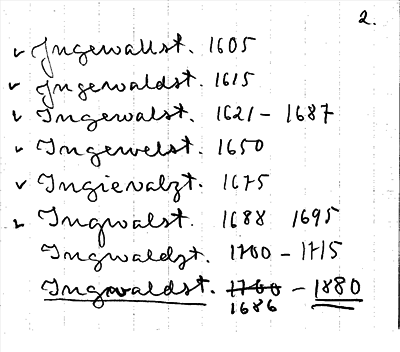 2.
✓ Ingewallst. 1605
✓ Ingewaldst. 1615
✓ Ingewalst. 1621 - 1687
✓ Ingewelst. 1650
✓ Ingievalzt. 1675
✓ Ingwalst. 1688 1695
Ingwaldzt. 1700 - 1715
Ingwaldst. 1700 - 1880
1686